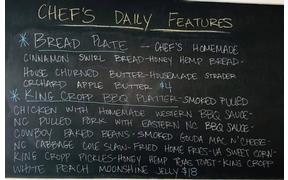 CHEF'S DAILY FEATURES
* BREAD PLATE - CHEF'S HOMEMADE
CINNAMON SWIRL BREAD-HONEY HEMP BREAD-
HOUSE CHURNED BUTTER-HOUSEMADE STRADER
ORCHARD APPLE BUTTER $4
* KING CROPP BBQ PLATTER-SMOKED PULLED
CHICKEN WITH HOMEMADE WESTERN BBQ SAUCE-
NC PULLED PORK WITH EASTERN NC BBQ SAUCE-
COWBOY BAKED BEANS- SMOKED GOUDA MAC N' CHEESE-
NC CABBAGE COLE SLAW-FRIED HOME FRIES-VA SWEET CORN-
KING CROPP PICKLES-HONEY HEMP TEXAS TOAST-KING CROPP
WHITE PEACH MOONSHINE JELLY $18